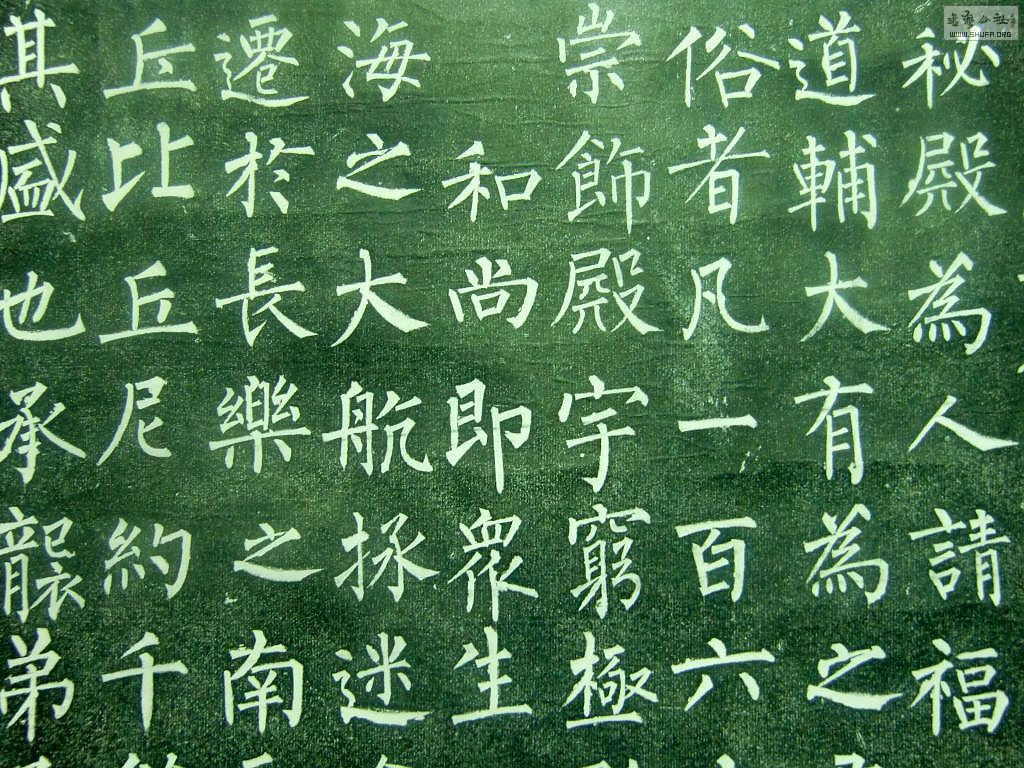 秘殿為人請福
道輔大有為之
俗者凡一百六
崇飾殿宇窮極
和尚即眾生
海之大航拯迷
遷於長樂之南
丘比丘尼約千
其盛也承襲弟
書藝公社
WWW.SHUFA.ORG